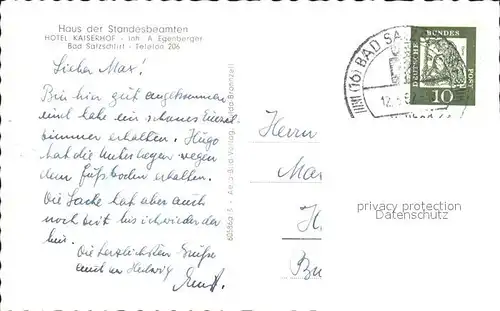 Haus der Standesbeamten
HOTEL KAISERHOF - Inh. A. Egenberger
Bad Salzschlirf - Telefon 206
Lieber Max!
Bin hier gut angekommen
und habe ein schönes Einzel-
zimmer erhalten. Hugo
hat die
dem Fußboden erhalten.
Die Sache hat aber auch
noch Zeit bis ich wieder da
bin.
Die herzlichsten Grüße
auch an Hedwig
Ernst.
60586a 5 - Aero-Bild-Verlag, Fulda-Bronnzell
(16) BAD SA
12.
DEUTSCHE BUNDESPOST
10
Herrn
Mar
H
privacy protection
Datenschutz